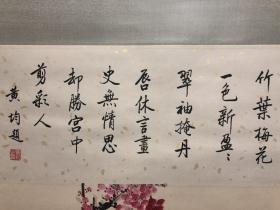 竹葉梅花
一色新盈〻
翠袖掩丹
唇休言畫
史無情思
却勝宮中
剪彩人
黄均題